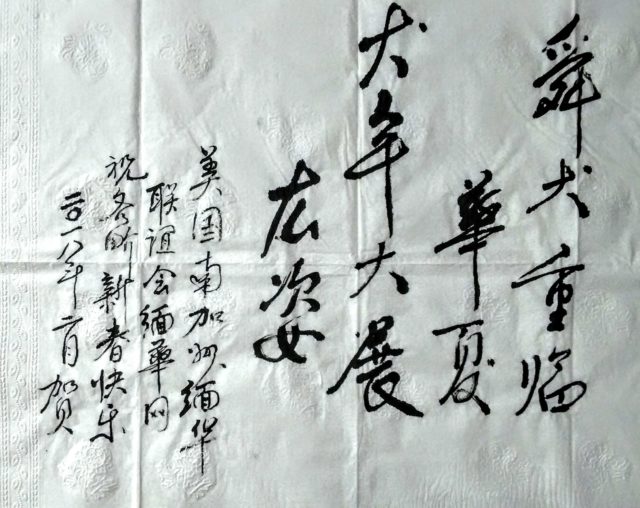 舜犬重临
華夏
犬年大展
宏姿
美国南加州缅华
联谊会缅華网
祝各界新春快乐
二〇一八年二月贺